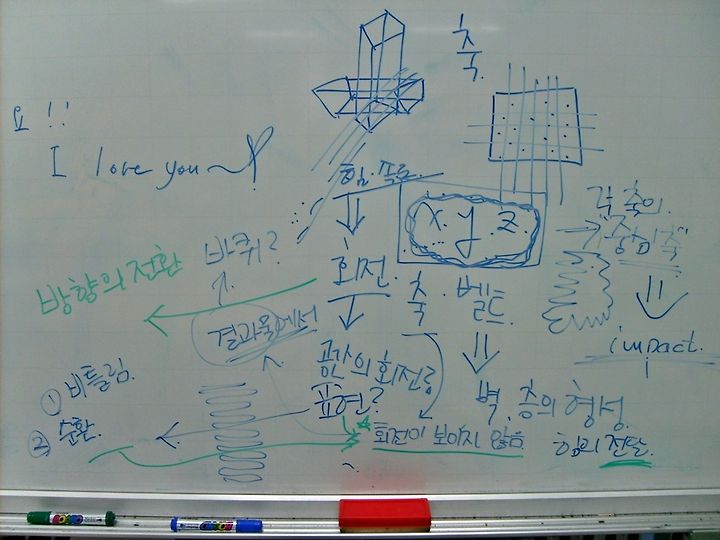 축
요!!
I love you
힘. 폭로
x. y. z.
각 축의
바퀴?
회전.
방향의 전환
축
벨트.
결과물에서
impact.
공간의 회전을
표현?
① 비틀림.
벽. 층의 형성.
② 순환.
회전이 보이지 않음
힘의 전달.